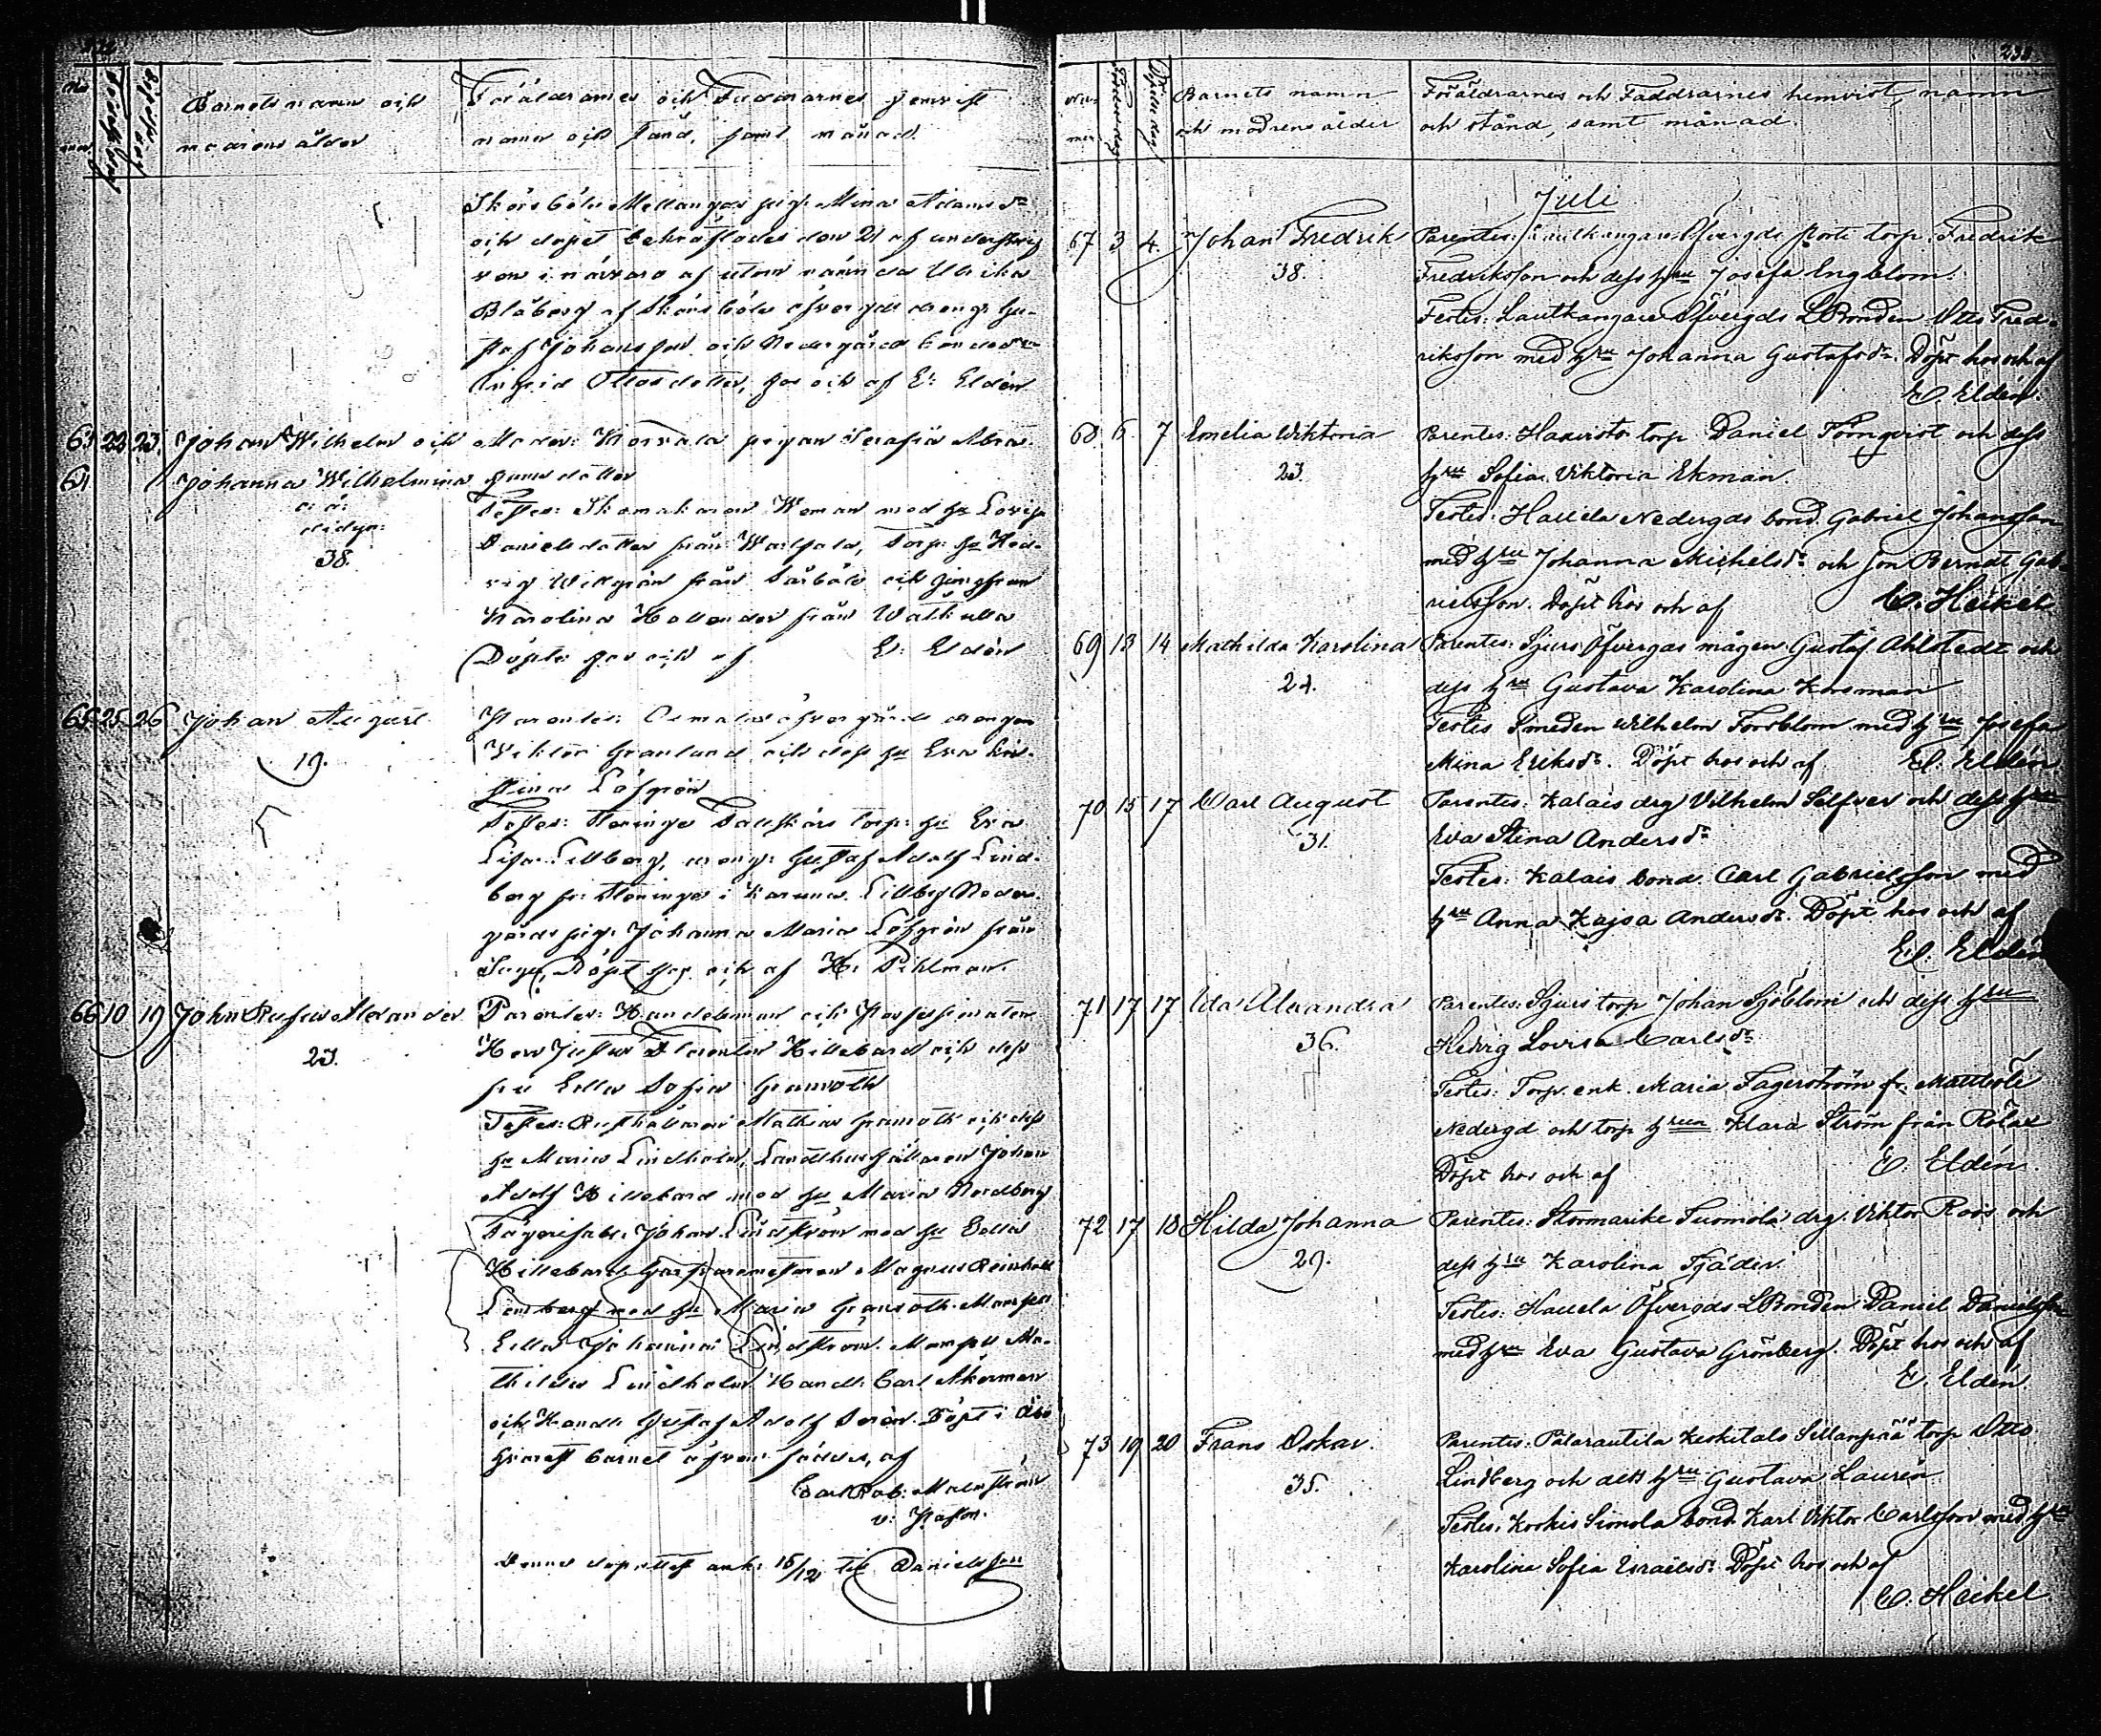 Barnets namn och
modrens ålder
Föräldrarnes och Faddrarnes hemvist
namn och stånd, samt månad.
Skärsböle Mellangårds pig. Mina Adamsdr
och dopet bekräftades den 21 af underskrif
ven i närvaro af utom nämnda Ulrika
Blåberg af Skärsböle öfvergds dreng. Gu-
staf Johansson och Nedergårds bondedr
Ingrid Ottosdotter, hos och af E. Eldén
63 22 23 Johan Wilhelm och
64 Johanna Wilhelmina
o. ä.
38.
Moder: pigan Serafia Abra-
hamsdotter
Testes: Skomakaren Woman med hu Lovisa
Danielsdotter från Torp. hu Hed-
vig Willgrén från och jungfrun
Karolina Hollender från Wattkulla
Döpte hos och af E. Eldén
65 25 26 Johan August
19.
Parentes: öfvergårds drengen
Viktor Granlund och dess hu Eva Kri-
stina Löfgrén
Testes: torp. hu Eva
Lisa Lillberg, dreng. Gustaf Adolf Lind-
berg fr. i Karuna. Neder-
gårds pig. Johanna Maria Löfgrén från
Döpt hos och af H. Pihlman.
66 10 19 John Rufus Alexander
23.
Parentes: Handelsman och Possessionaten
Herr Justus Hillebard och dess
fru Edla Sofia Granroth
Testes: Rusthållaren Mathias Granroth och dess
hu Maria Lindholm, Johan
Adolf Hillebard med hu Maria Nordberg
Johan Lindström med hu Edla
Hillebard, Garfvaremästaren Magnus Reinhold
Lemberg med hu Maria Granroth. Mamsell
Edla Johanna Lindström. Mamsell Ma-
thilda Lindholm. Handl. Carl Åkerman
och Handl. Gustaf Adolf Serén. Döpt i Åbo
hvarest barnet äfven föddes, af
Carl Rob. Malmström
v. Pastor.
Denna dopattest ank. 15/12 Danielsson
Num
mer
Födelsedag
Döpelsedag
Barnets namn
och modrens ålder
Föräldrarnes och Faddrarnes hemvist, namn
och stånd, samt månad.
Juli
67 3 4 Johan Fredrik
38.
Parentes: Lautkangare Öfvergds torp. Fredrik
Fredriksson och dess hru Josefa Engblom.
Testes: Lautkangare Öfvergds LBonden Otto Fred-
riksson med hru Johanna Gustafsdr. Döpt hos och af
E. Eldén.
68 6 7 Emelia Wiktoria
23.
Parentes: Hanvisto torp. Daniel Törnqvist och dess
hru Sofia Viktoria Ekman.
Testes: Havela Nedergds bond. Gabriel Johansson
med hru Johanna Michelsdr och son Berndt Gab-
rielsson. Döpt hos och af C. Heikel
69 13 14 Mathilda Karolina
24.
Parentes: Sjurs Öfvergds mågen Gustaf Ahlstedt och
dess hru Gustava Karolina Korsman
Testes Smeden Wilhelm Forsblom med hru Josefa
Mina Eriksdr. Döpt hos och af E. Eldén
70 15 17 Carl August
31.
Parentes: Kalais drg Vilhelm Selfver och dess hru
Eva Stina Andersdr
Testes: Kalais bond. Carl Gabrielsson med
hru Anna Kajsa Andersdr. Döpt hos och af
E. Eldén
71 17 17 Ida Alexandra
36.
Parentes: Sjurs torp Johan Sjöblom och dess hru
Hedvig Lovisa Carlsdr
Testes: Torp. enk. Maria Fagerström fr. Mattböle
Nedergd och torp hrun Klara Ström från Rölax
Döpt hos och af E. Eldén.
72 17 18 Hilda Johanna
29.
Parentes: Stormarike Tuomola drg. Viktor Roos och
dess hru Karolina Fjäder.
Testes: Havela Öfvergds LBonden Daniel Danielsson
med hru Eva Gustava Grönberg. Döpt hos och af
E. Eldén.
73 19 20 Frans Oskar.
35.
Parentes: Palarautila Keskitalo Sillanpää torp Otto
Lindberg och dess hru Gustava Laurén
Testes: Koskis Simola bond. Karl Viktor Carlsson med hru
Karolina Sofia Israelsdr. Döpt hos och af
C. Heikel